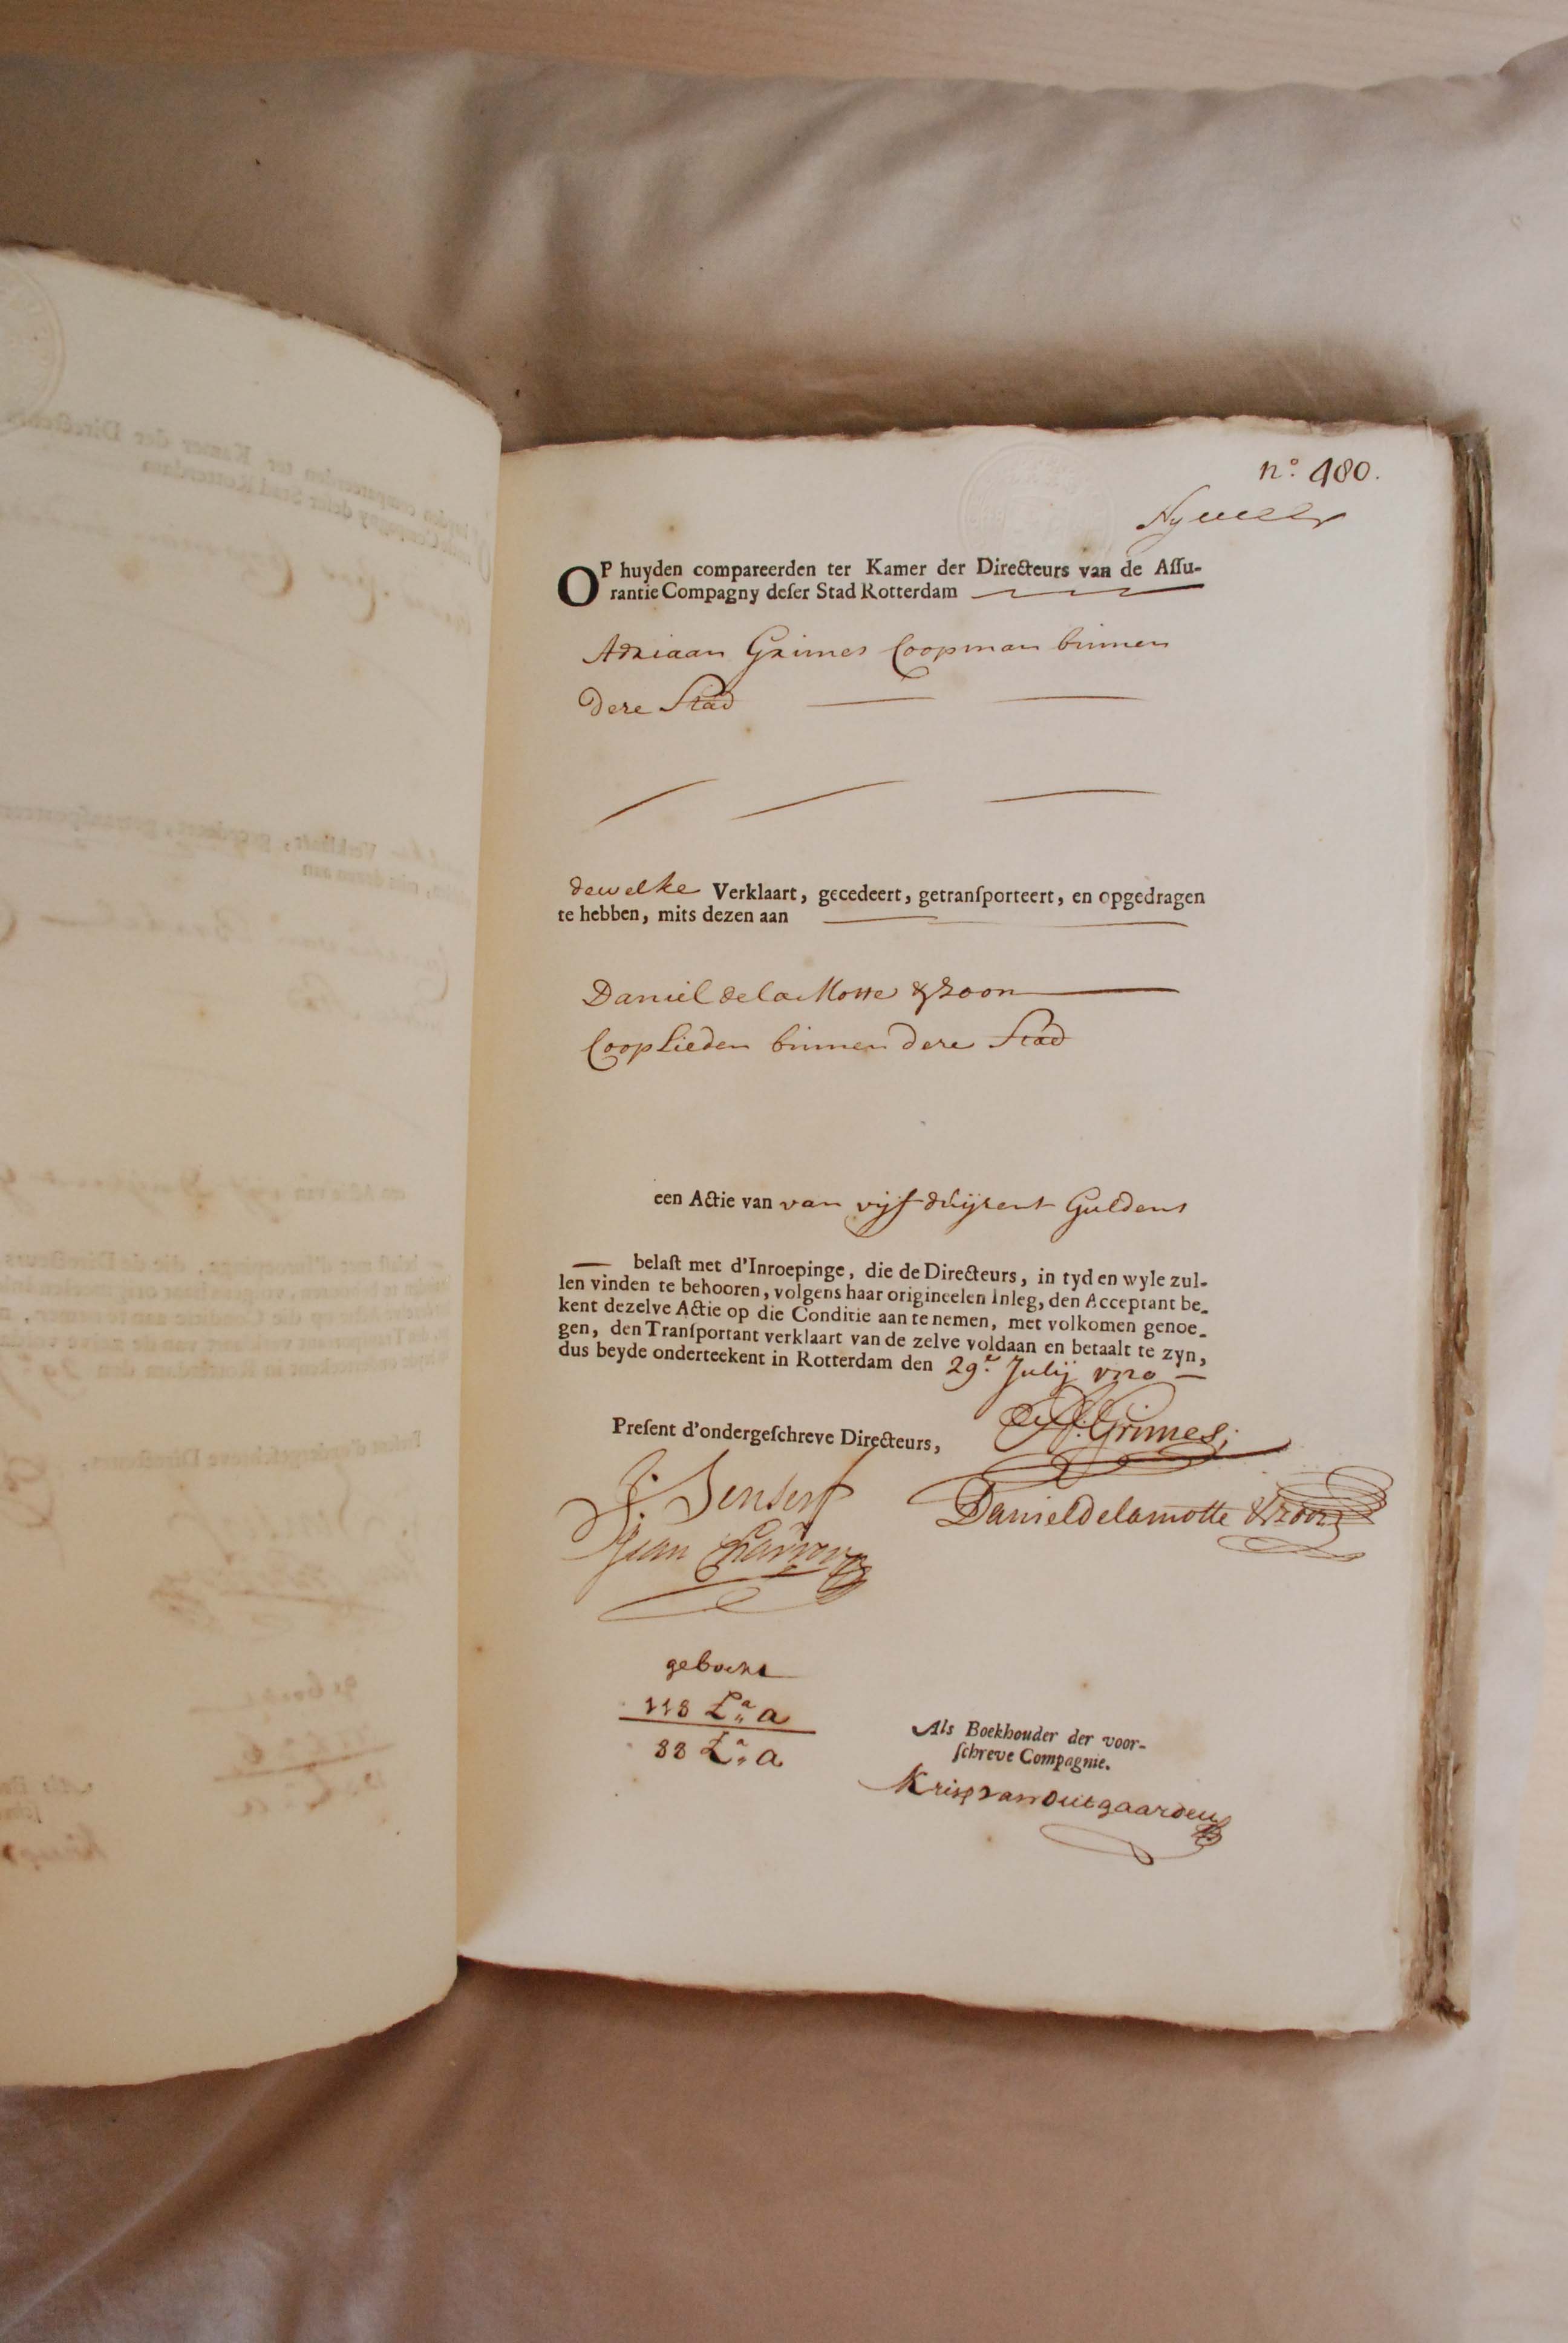 nº 480.
OP huyden compareerden ter Kamer der Directeurs van de Aſſu-
rantie Compagny deſer Stad Rotterdam
Adriaan Grimes Coopman binnen
deze Stad
dewelke Verklaart, gecedeert, getranſporteert, en opgedragen
te hebben, mits dezen aan
Daniel de la Motte & zoon
Cooplieden binnen deze Stad
een Actie van van vijf duijzent Guldens
belaſt met d'Inroepinge, die de Directeurs, in tyd en wyle zul-
len vinden te behooren, volgens haar origineelen Inleg, den Acceptant be-
kent dezelve Actie op die Conditie aan te nemen, met volkomen genoe-
gen, den Tranſportant verklaart van de zelve voldaan en betaalt te zyn,
dus beyde onderteekent in Rotterdam den 29.e Julij 1720
Preſent d'ondergeſchreve Directeurs,
Grimes
J. Senserf
Daniel de lamotte & zoon
Jean
geboekt
118 L.a a
88 L.a a
Als Boekhouder der voor-
ſchreve Compagnie.
Krisp van Outgaarden